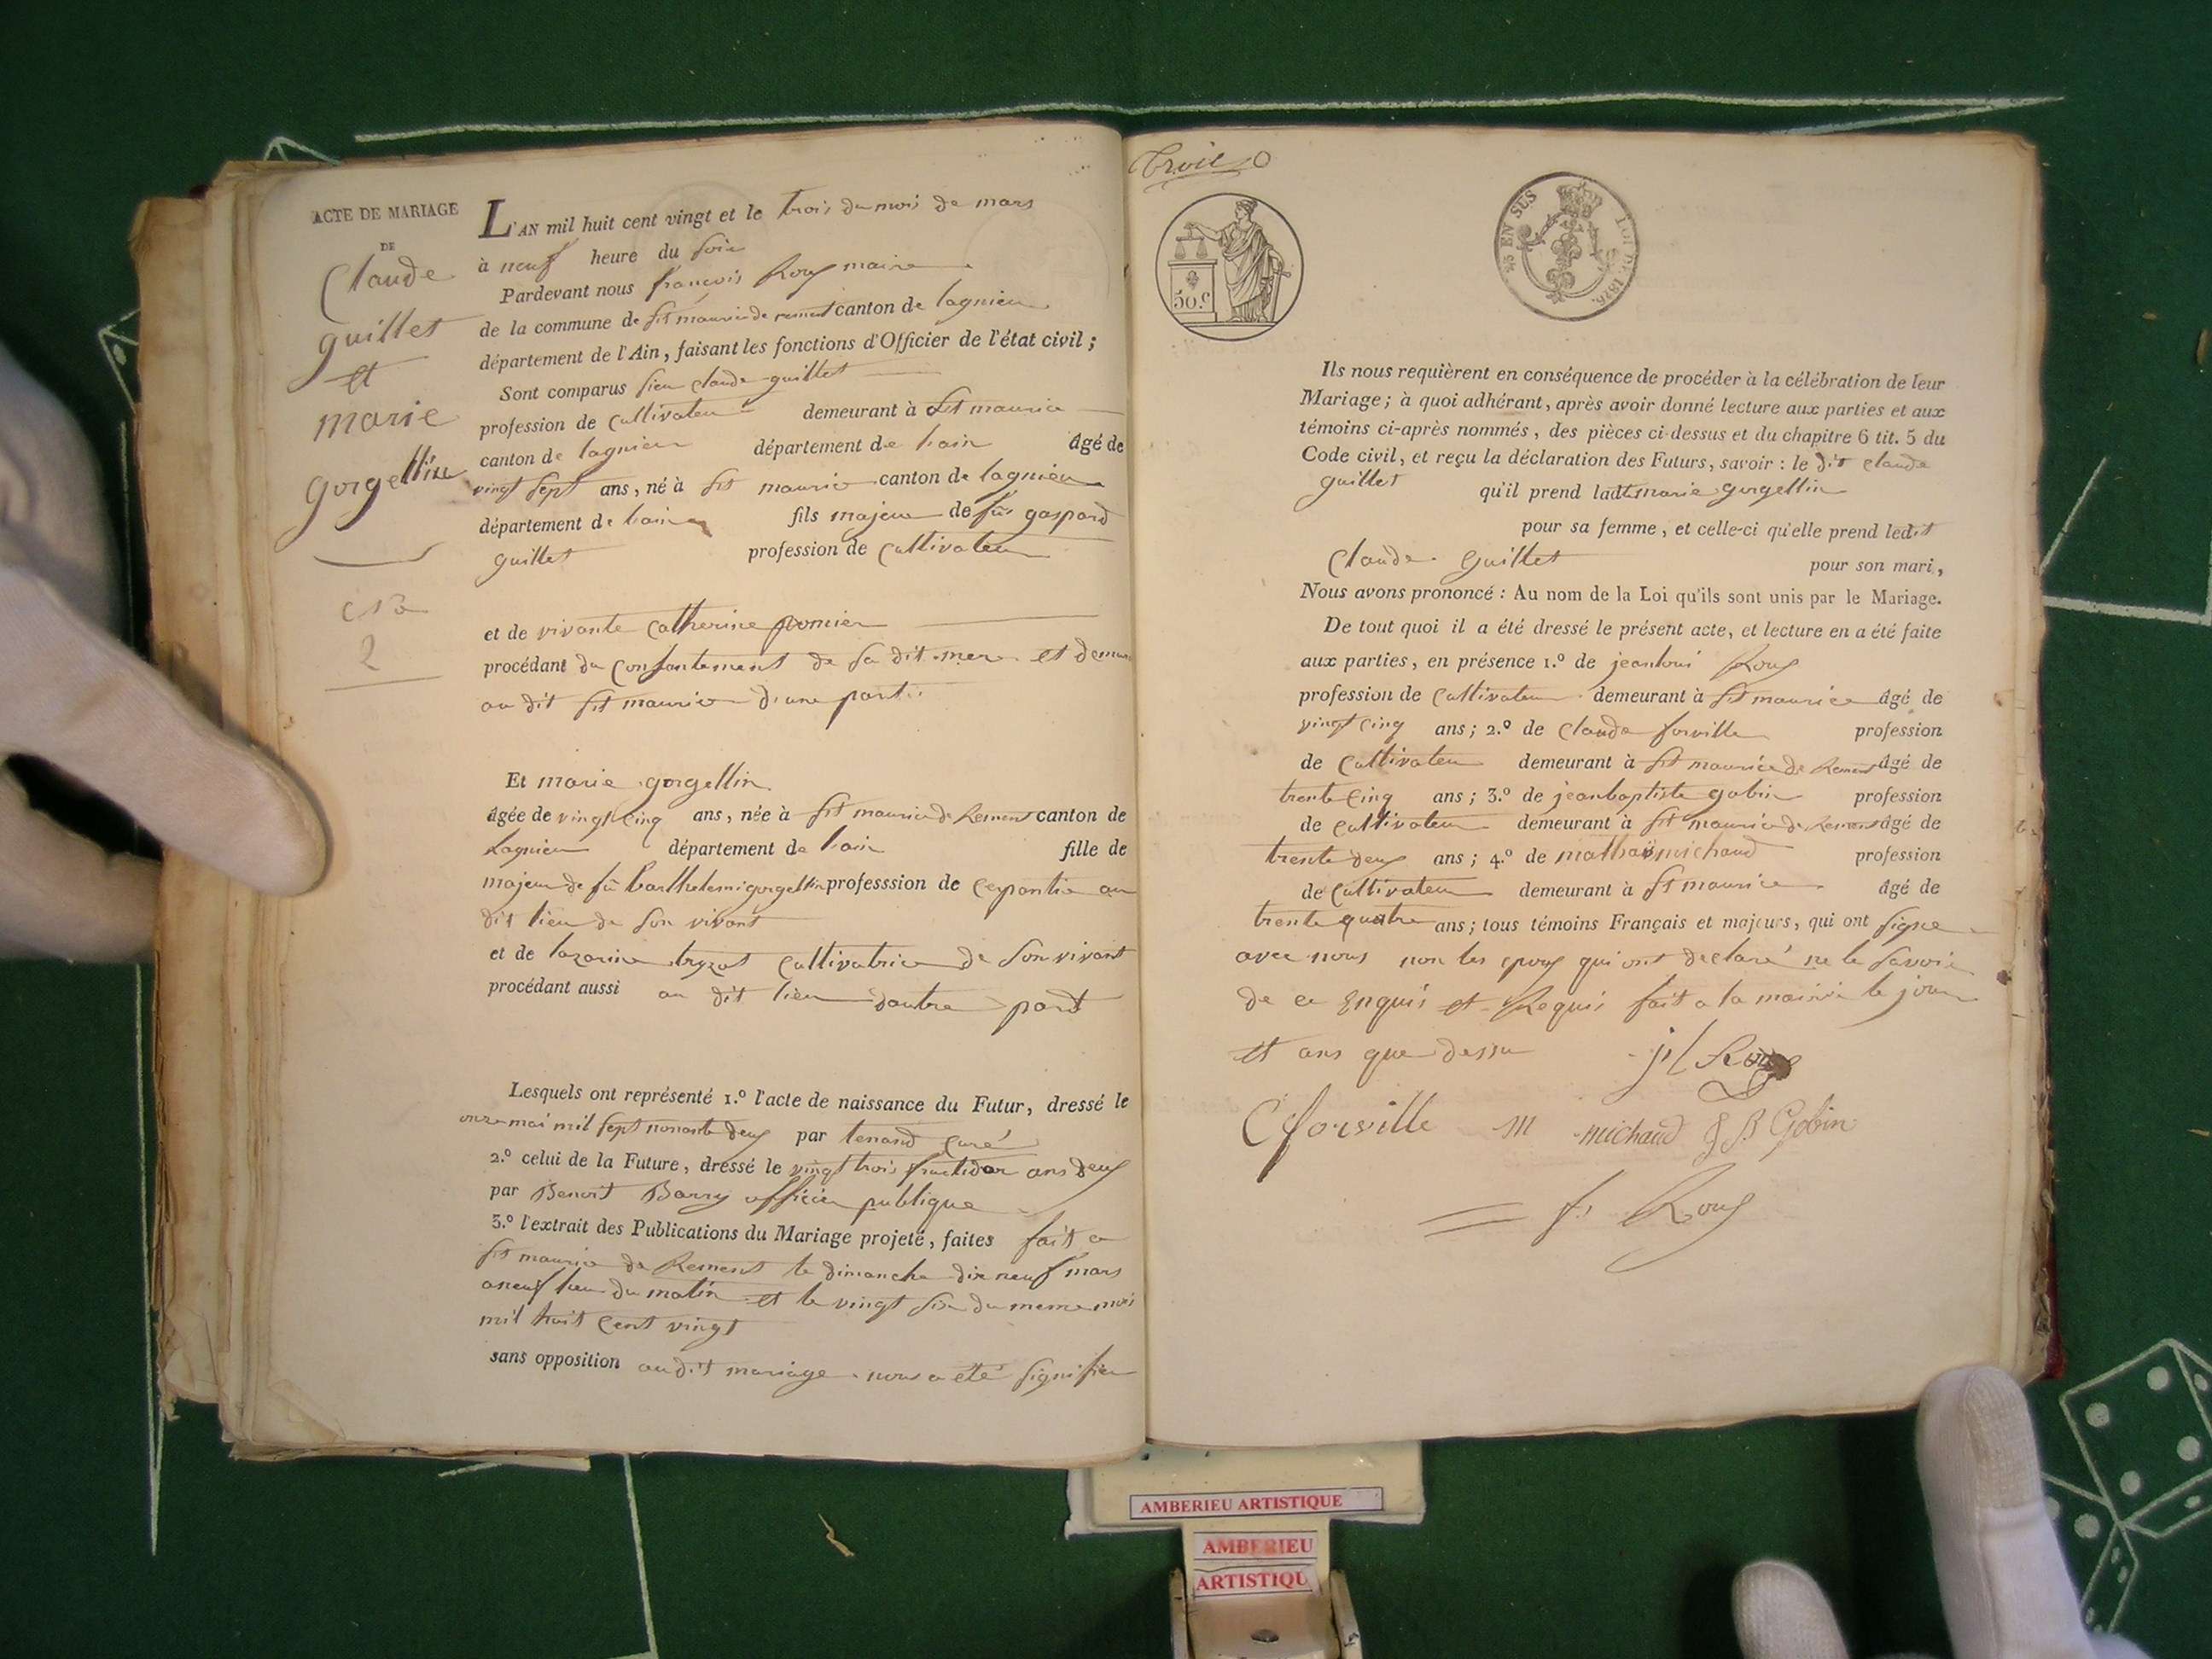 ACTE DE MARIAGE
DE
Claude
guillet
et
marie
gorgellin
No
2
L'AN mil huit cent vingt et le trois du mois de mars
à neuf heure du soir
Pardevant nous françois Roux maire
de la commune de st maurice de remens canton de lagnieu
département de l'Ain, faisant les fonctions d'Officier de l'état civil;
Sont comparus sieu claude guillet
profession de cultivateur demeurant à st maurice
canton de lagnieu département de lain âgé de
vingt sept ans, né à st maurice canton de lagnieu
département de lain fils majeur de fûs gaspard
guillet profession de cultivateur
et de vivante catherine
procédant du consantement de sa dit mere et demeu
au dit st maurice d'une part
Et marie gorgellin
âgée de vingt cinq ans, née à st maurice de Remens canton de
Lagnieu département de lain fille de
majeur de fû barthelemi gorgellin professsion de au
dit lieu de son vivant
et de lazarine cultivatrice de son vivant
procédant aussi au dit lieu dautre part
Lesquels ont représenté 1.º l'acte de naissance du Futur, dressé le
onze mai mil sept nonante deux par tenand curé
2.º celui de la Future, dressé le vingt trois fructidor ans deux
par Benoit Barry officier publique
3.º l'extrait des Publications du Mariage projeté, faites fait a
st maurice de Remens le dimanche dix neuf mars
a neuf heu du matin et le vingt six du meme mois
mil huit cent vingt
sans opposition au dit mariage nous a été signifier
Troie
50.C
25 EN SUS
ROI DE 1816.
Ils nous requièrent en conséquence de procéder à la célébration de leur
Mariage; à quoi adhérant, après avoir donné lecture aux parties et aux
témoins ci-après nommés, des pièces ci-dessus et du chapitre 6 tit. 5 du
Code civil, et reçu la déclaration des Futurs, savoir : le dit claude
guillet qu'il prend ladt marie gorgellin
pour sa femme, et celle-ci qu'elle prend ledit
Claude guillet pour son mari,
Nous avons prononcé : Au nom de la Loi qu'ils sont unis par le Mariage.
De tout quoi il a été dressé le présent acte, et lecture en a été faite
aux parties, en présence 1.º de jean loui Roux
profession de cultivateur demeurant à st maurice âgé de
vingt cinq ans; 2.º de claude forville profession
de cultivateu demeurant à st maurice de Remens âgé de
trente cinq ans; 3.º de jean baptiste gobin profession
de cultivateu demeurant à st maurice de Remens âgé de
trente deux ans; 4.º de michaud profession
de cultivateu demeurant à st maurice âgé de
trente quatre ans; tous témoins Français et majeurs, qui ont signe
avec nous non les epoux qui ont declaré ne le savoir
de ce Enquis et Requis fait a la mairie le jour
et ans que dessu
jl Roux
C forville m michaud J B Gobin
f. Roux
AMBERIEU ARTISTIQUE
AMBERIEU
ARTISTIQU